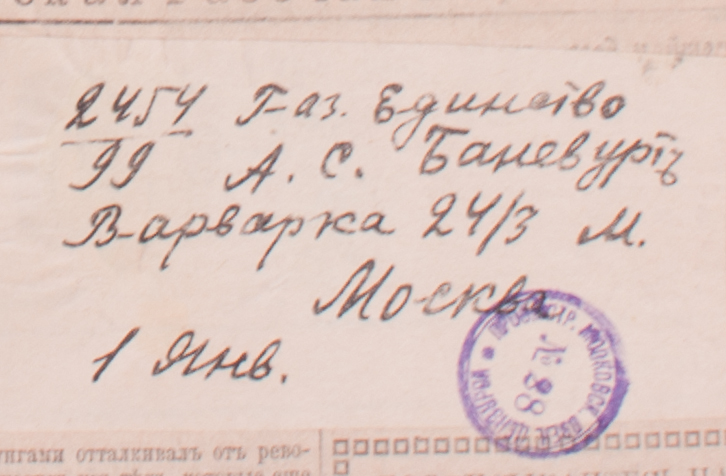 2454 Газ. Единство
99 А. С. Баневуръ
Варварка 24/3 М.
Москва
1 Янв.
№ 98
нгами отталкивалъ отъ рево-